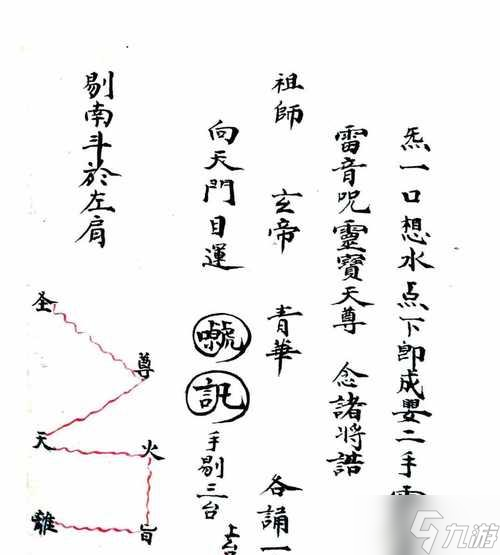 炁一口想水点下即成嬰二手雷
雷音咒靈寶天尊 念諸將誥
祖師 玄帝 青華 各誦一
向天門目運 訊 手剔三台
剔南斗於左肩
圣
尊
天
火
離
旨
九游